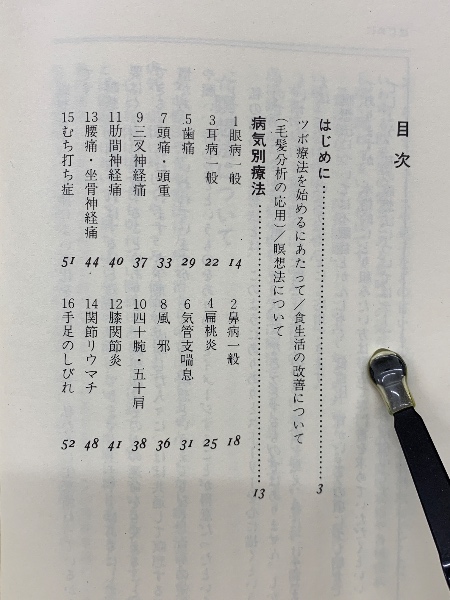 目次
はじめに……………………………3
ツボ療法を始めるにあたって／食生活の改善について
（毛髪分析の応用）／瞑想法について
病気別療法……………………………13
1 眼病一般 14 2 鼻病一般 18
3 耳病一般 22 4 扁桃炎 25
5 歯痛 29 6 気管支喘息 31
7 頭痛・頭重 33 8 風邪 36
9 三叉神経痛 37 10 四十腕・五十肩 38
11 肋間神経痛 40 12 膝関節炎 41
13 腰痛・坐骨神経痛 44 14 関節リウマチ 48
15 むち打ち症 51 16 手足のしびれ 52